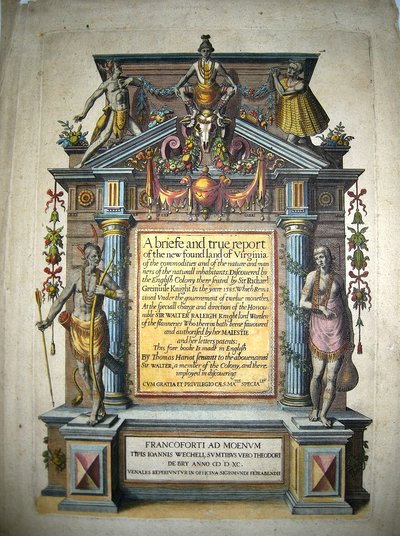 A briefe and true report
of the new found land of Virginia
of the commodities and of the nature and man
ners of the naturall inhabitants. Discouered by
the English Colony there seated by Sir Richard
Greinuile Knight In the yeere 1585. Which Remai
ned Vnder the gouernement of twelue monethes,
At the speciall charge and direction of the Honou-
rable SIR WALTER RALEIGH Knight lord Warden
of the stanneries Who therein hath beene fauoured
and authorised by her MAIESTIE
and her letters patents:
This fore booke Is made in English
By Thomas Hariot seruant to the abouenamed
SIR WALTER, a member of the Colony, and there
imployed in discouering
CVM GRATIA ET PRIVILEGIO CÆS. MA.TIS SPECIALI
FRANCOFORTI AD MOENVM
TYPIS IOANNIS WECHELI, SVMTIBVS VERO THEODORI
DE BRY ANNO CIↃ IↃ XC.
VENALES REPERIVNTVR IN OFFICINA SIGISMVNDI FEIRABENDII